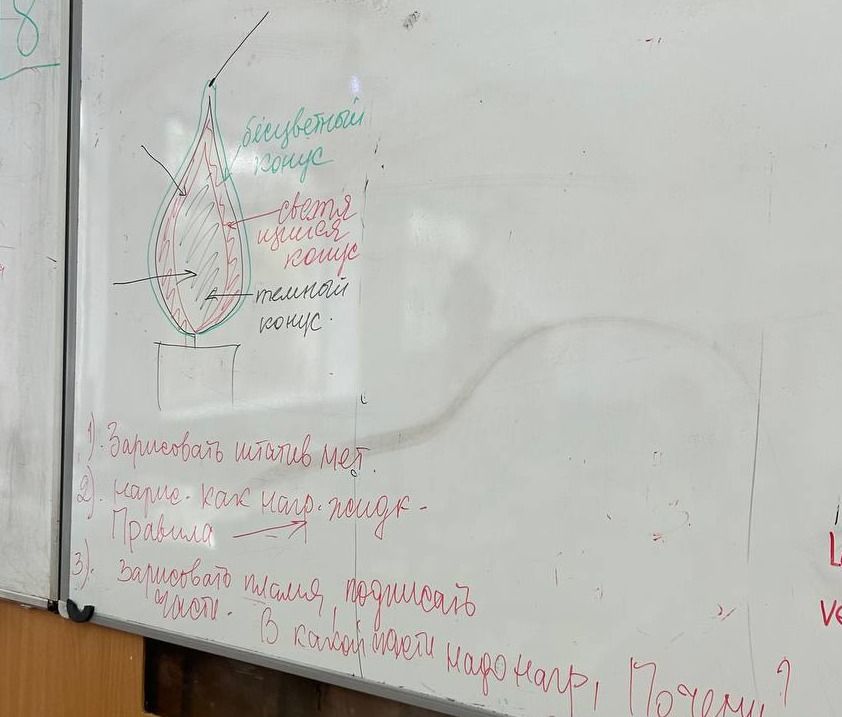 8
бесцветный
конус
светя
щийся
конус
темный
конус.
1). Зарисовать штатив мет.
2). нарис. как нагр. жидк.
Правила
3). Зарисовать пламя, подписать
части. В какой части надо нагр, Почему?